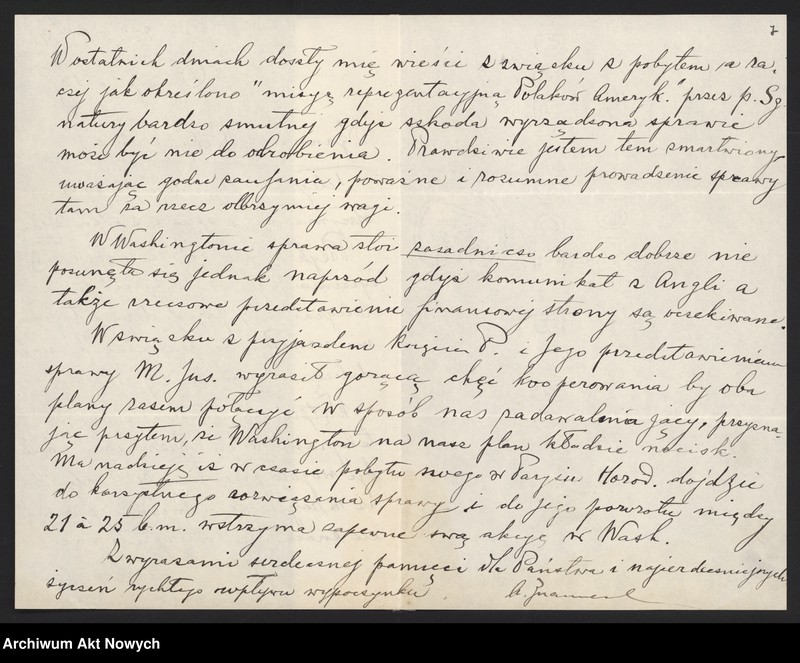 7
W ostatnich dniach doszły mię wieści z związku z pobytem, a ra-
czej jak określono "misyą reprezentacyjną Polaków Ameryk." przez p. Sz.
natury bardzo smutnej gdyż szkoda wyrządzona sprawie
może być nie do odrobienia. Prawdziwie jestem tem zmartwiony
uważając godne zaufania, poważne i rozumne prowadzenie sprawy
tam za rzecz olbrzymiej wagi.
W Washingtonie sprawa stoi zasadniczo bardzo dobrze nie
posunęła się jednak naprzód gdyż komunikat z Anglii a
także rzeczowe przedstawienie finansowej strony są oczekiwane.
W związku z przyjazdem Księcia P. i Jego przedstawieniem
sprawy M. Jus. wyraził gorącą chęć kooperowania by oba
plany razem połączyć w sposób nas zadawalniający, przyzna-
jąc przytem, że Washington na nasz plan kładzie nacisk.
Ma nadzieję iż w czasie pobytu swego w Paryżu Horod. dojdzie
do korzystnego rozwiązania sprawy i do Jego powrotu między
21 à 25 b.m. wstrzyma zapewne swą akcję w Wash.
Z wyrazami serdecznej pamięci dla Państwa i najserdeczniejszych
życzeń rychłego wpływu wypoczynku
A. Znamiec
Archiwum Akt Nowych